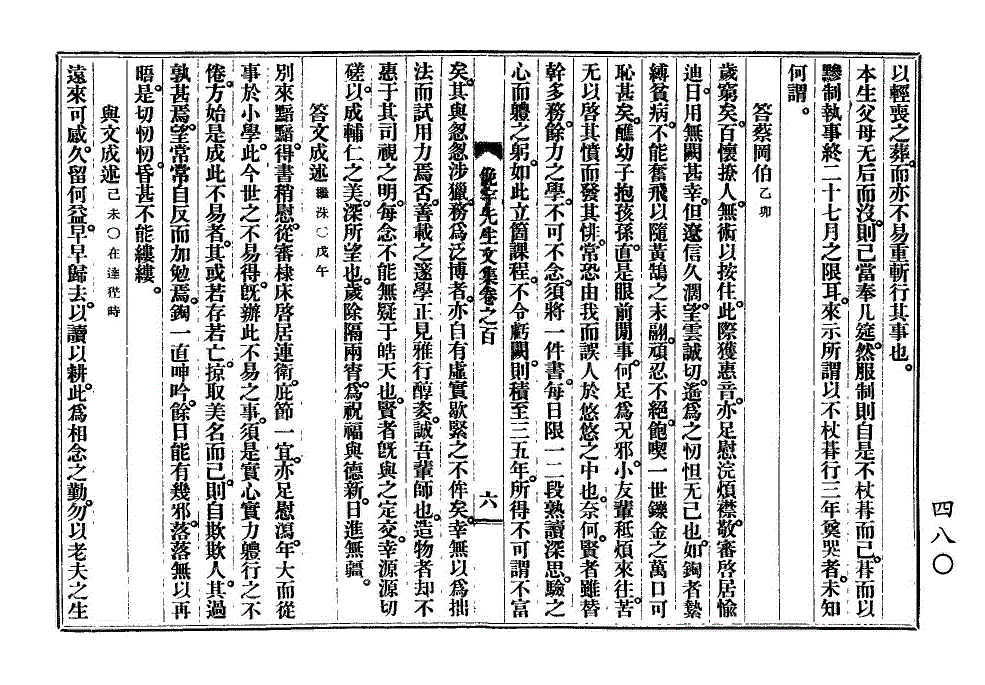 以輕喪之葬而亦不易重斬行其事也。
本生父母无后而沒則己當奉几筵然服制則自是不杖朞而已朞而以
黲制執事終二十七月之限耳來示所謂以不杖朞行三年奠哭者未知
何謂。
答蔡岡伯乙卯
歲窮矣百懷撩人無術以按住此際獲惠音亦足慰浣煩襟敬審啓居愉
迪日用無闕甚幸但遼信久濶望雲誠切遙爲之忉怛无已也如鋾者縶
縛貧病不能奮飛以隨黃鵠之未翮頑忍不絕飽喫一世鑠金之萬口可
恥甚矣醮幼子抱孩孫直是眼前閒事何足爲況邪小友輩秪煩來往苦
无以啓其憤而發其悱常恐由我而誤人於悠悠之中也奈何賢者雖替
幹多務餘力之學不可不念須將一件書每日限一二段熟讀深思驗之
心而軆之躬如此立箇課程不令虧闕則積至三五年所得不可謂不富
俛宇先生文集卷之百 六
矣其與忽忽涉獵務爲泛博者亦自有虛實歇緊之不侔矣幸無以爲拙
法而試用力焉否善載之邃學正見雅行醇姿誠吾輩師也造物者却不
惠于其司視之明每念不能無疑于皓天也賢者旣與之定交幸源源切
磋以成輔仁之美深所望也歲除隔兩宵爲祝福與德新日進無疆。
答文成述繼洙○戊午
別來黯黯得書稍慰從審棣床啓居連衛庇節一宜亦足慰瀉年大而從
事於小學此今世之不易得旣辦此不易之事須是實心實力軆行之不
倦方始是成此不易者其或若存若亡掠取美名而已則自欺欺人其過
孰甚焉望常常自反而加勉焉鋾一直呻吟餘日能有幾邪落落無以再
晤是切忉忉昏甚不能縷縷。
與文成述己未○在達徃時
遠來可感久留何益早早歸去以讀以耕此爲相念之勤勿以老夫之生
四八〇